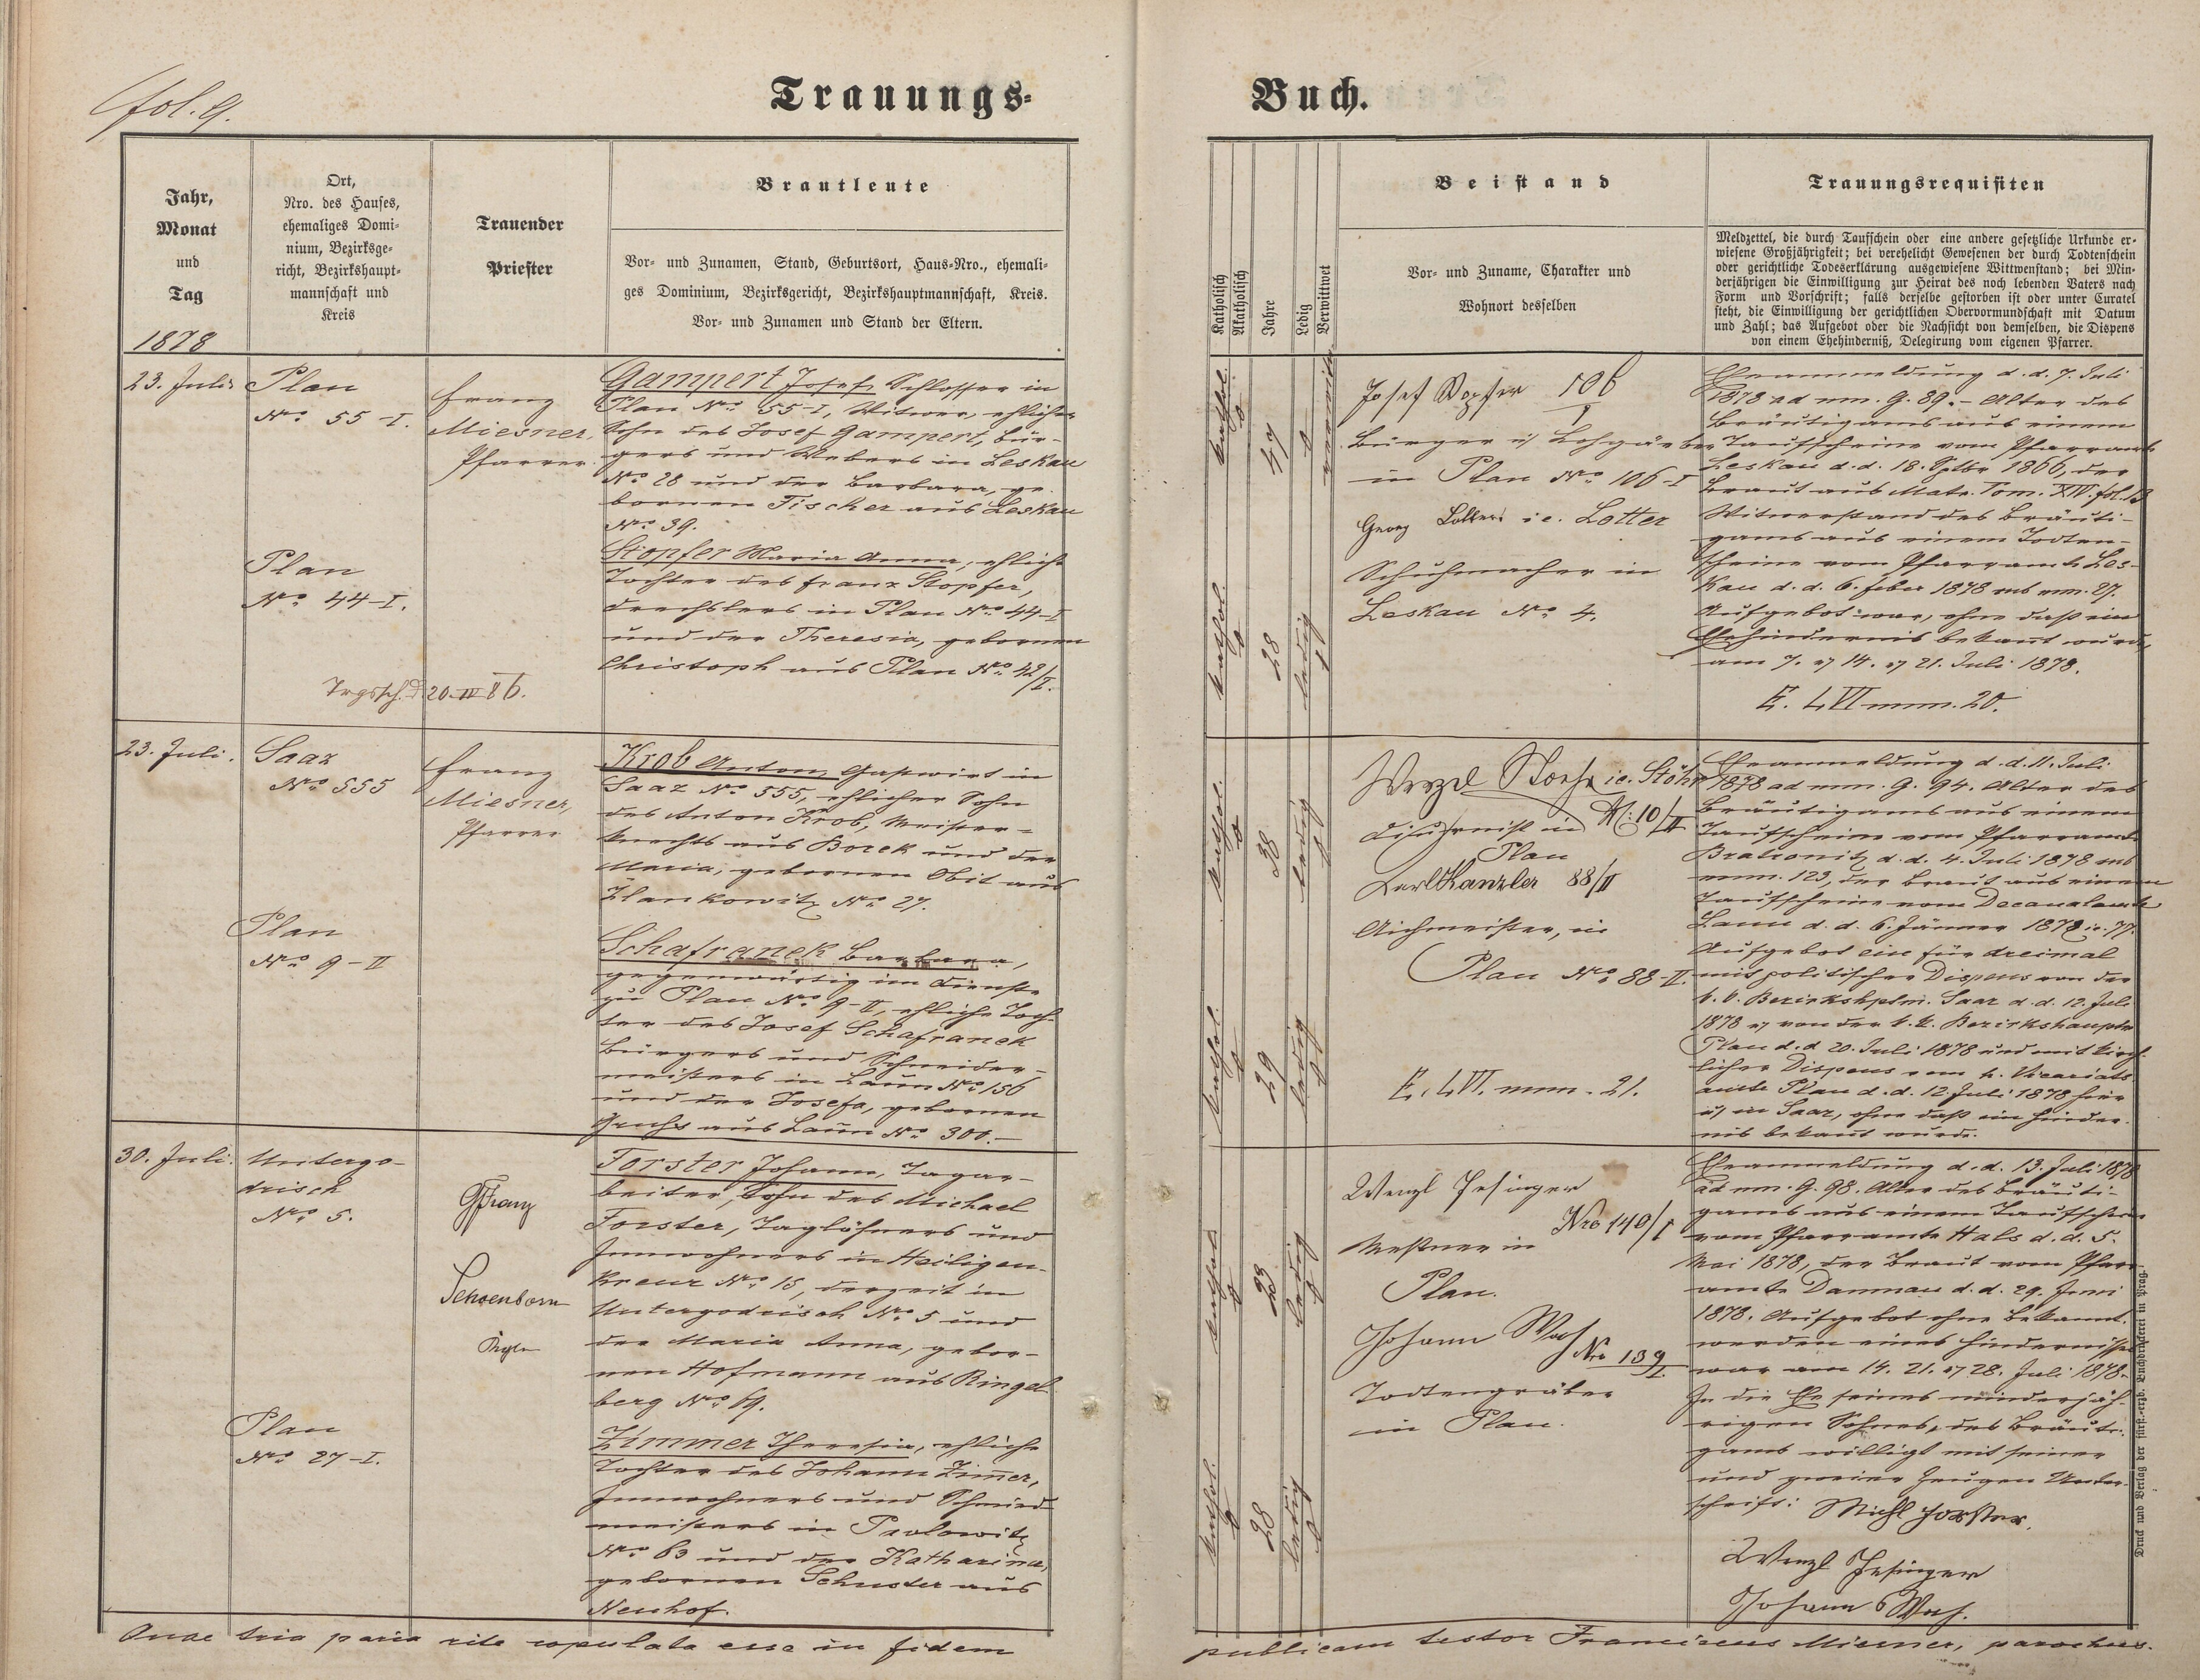 fol. 9.
Trauungs-
Buch.
Jahr,
Monat
und
Tag
1878
Ort,
Nro. des Hauses,
ehemaliges Domi-
nium, Bezirksge-
richt, Bezirkshaupt-
mannschaft und
Kreis
Trauender
Priester
Brautleute
Vor- und Zunamen, Stand, Geburtsort, Haus-Nro., ehemali-
ges Dominium, Bezirksgericht, Bezirkshauptmannschaft, Kreis.
Vor- und Zunamen und Stand der Eltern.
Katholisch
Akatholisch
Jahre
Ledig
Verwittwet
Beistand
Vor- und Zuname, Charakter und
Wohnort desselben
Trauungsrequisiten
Meldzettel, die durch Taufschein oder eine andere gesetzliche Urkunde er-
wiesene Großjährigkeit; bei verehelicht Gewesenen der durch Todtenschein
oder gerichtliche Todeserklärung ausgewiesene Wittwenstand; bei Min-
derjährigen die Einwilligung zur Heirat des noch lebenden Vaters nach
Form und Vorschrift; falls derselbe gestorben ist oder unter Curatel
steht, die Einwilligung der gerichtlichen Obervormundschaft mit Datum
und Zahl; das Aufgebot oder die Nachsicht von demselben, die Dispens
von einem Ehehinderniß, Delegirung vom eigenen Pfarrer.
23. Juli
Plan
No 55-I.
Franz
Miesner,
Pfarrer.
Gampert Josef, Schlosser in
Plan No 55-I, Witwer, ehlicher
Sohn des Josef Gampert, Bür-
gers und Webers in Leskau
No 28 und der Barbara, ge-
bornen Fischer aus Leskau
No 39.
Plan
No 44-I.
Stopfer Maria Anna, ehliche
Tochter des Franz Stopfer,
Drechslers in Plan No 44-I
und der Theresia, gebornen
Christoph aus Plan No 42/I.
Trgssch. d. 20. IV 86.
kathol.
47
verwittw.
kathol.
28
ledig
Josef Stopfer 106/I
Bürger u Lohgärber
in Plan No 106-I
Georg Lotter i.e. Lotter
Schuhmacher in
Leskau No 4.
Eheanmeldung d. d. 7. Juli
1878 ad num. G. 89. - Alter des
Bräutigams aus einem
Taufscheine vom Pfarramte
Leskau d. d. 18. Sptbr 1866, der
Braut aus Matr. Tom. XIV. fol. 13
Witwerstand des Bräuti-
gams aus einem Todten-
scheine vom Pfarramte Les-
kau d. d. 6. Feber 1878 sub num. 27.
Aufgebot war, ohne daß ein
Ehehindernis bekant wurde,
am 7. 14. 21. Juli 1878.
E. LVI num. 20.
23. Juli.
Saaz
No 555
Franz
Miesner,
Pfarrer
Krob Anton, Gastwirt in
Saaz No 555, ehlicher Sohn
des Anton Krob, Meister-
knechts aus Borek und der
Maria, gebornen Obit aus
Zlankowitz No 27.
Plan
No 9-II
Schafranek Barbara,
gegenwärtig im Dienste
zu Plan No 9-II, ehliche Toch-
ter des Josef Schafranek
Bürgers und Schneider-
meisters in Laun No 156
und der Josefa, gebornen
Fuchs aus Laun No 301.-
kathol.
38
ledig
kathol.
29
ledig
Wenzl Stoehr i.e. Stöhr
No: 10/II
Plan
Karl Kanzler 88/II
Aichmeister, in
Plan No 88-II.
E. LVI. num. 21.
Eheanmeldung d. d. 11. Juli
1878 ad num. G. 94. Alter des
Bräutigams aus einem
Taufscheine vom Pfarramte
Bratronitz d. d. 4. Juli 1878 sub
num. 123, der Braut aus einem
Taufscheine vom Decanalamte
Laun d. d. 6. Jänner 1878
Aufgebot ein für dreimal
mit politischer Dispens von der
k. k. Bezirkshptm. Saaz d. d. 12. Juli
1878 von der k. k. Bezirkshauptm
Plan d. d 20. Juli 1878 und mit kirch-
licher Dispens vom h. Vicariats-
amte Plan d. d. 12. Juli 1878 hier
u in Saaz, ohne daß ein Hinder-
nis bekant wurde.
30. Juli.
Untergo-
drisch
No 5.
Franz
Schoenborn
Forster Johann, Tagar-
beiter, Sohn des Michael
Forster, Taglöhners und
Innwohners in Heiligen-
kreuz No 15, derzeit in
Untergodrisch No 5 und
der Maria Anna, gebor-
nen Hofmann aus Ringel-
berg No 19.
Plan
No 27-I.
Zimmer Theresia, ehliche
Tochter des Johann Zimmer,
Innwohners und Schmied-
meisters in Pawlowitz
No 63 und der Katharina,
gebornen Schuster aus
Neuhof.
kathol.
23
ledig
kathol.
28
ledig
Wenzl Hesinger
Nro 140/I
Meßner in
Plan.
Johann Wach
Nro 139/I.
Todtengräber
in Plan.
Eheanmeldung d. d. 13. Juli 1878
ad num. G. 98. Alter des Bräuti-
gams aus einem Taufscheine
vom Pfarramte Hals d. d. 5.
Mai 1878, der Braut vom Pfarr-
amte Damnau d. d. 29. Juni
1878. Aufgebot ohne Bekannt-
werden eines Hindernisses
war am 14. 21. 28. Juli 1878.
In die Ehe seines minderjäh-
rigen Sohnes, des Bräuti-
gams willigt mit seiner
und zweier Zeugen Unter-
schrift: Michl Forster,
Wenzl Hesinger
Johann Wach.
Druck und Verlag der fürst.-erzb. Buchdruckerei in Prag.
Quae tria paria rite copulata esse in fidem
publicam testor Franciscus Miesner, parochus.